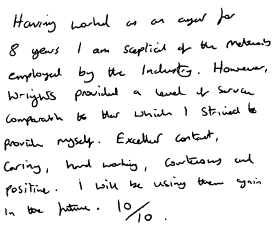 Having worked as an agent for
8 years I am sceptical of the methods
employed by the Industry. However,
Wrights provided a level of service
comparable to that which I strived to
provide myself. Excellent contact,
Caring, hard working, courteous and
positive. I will be using them again
in the future. 10/10.